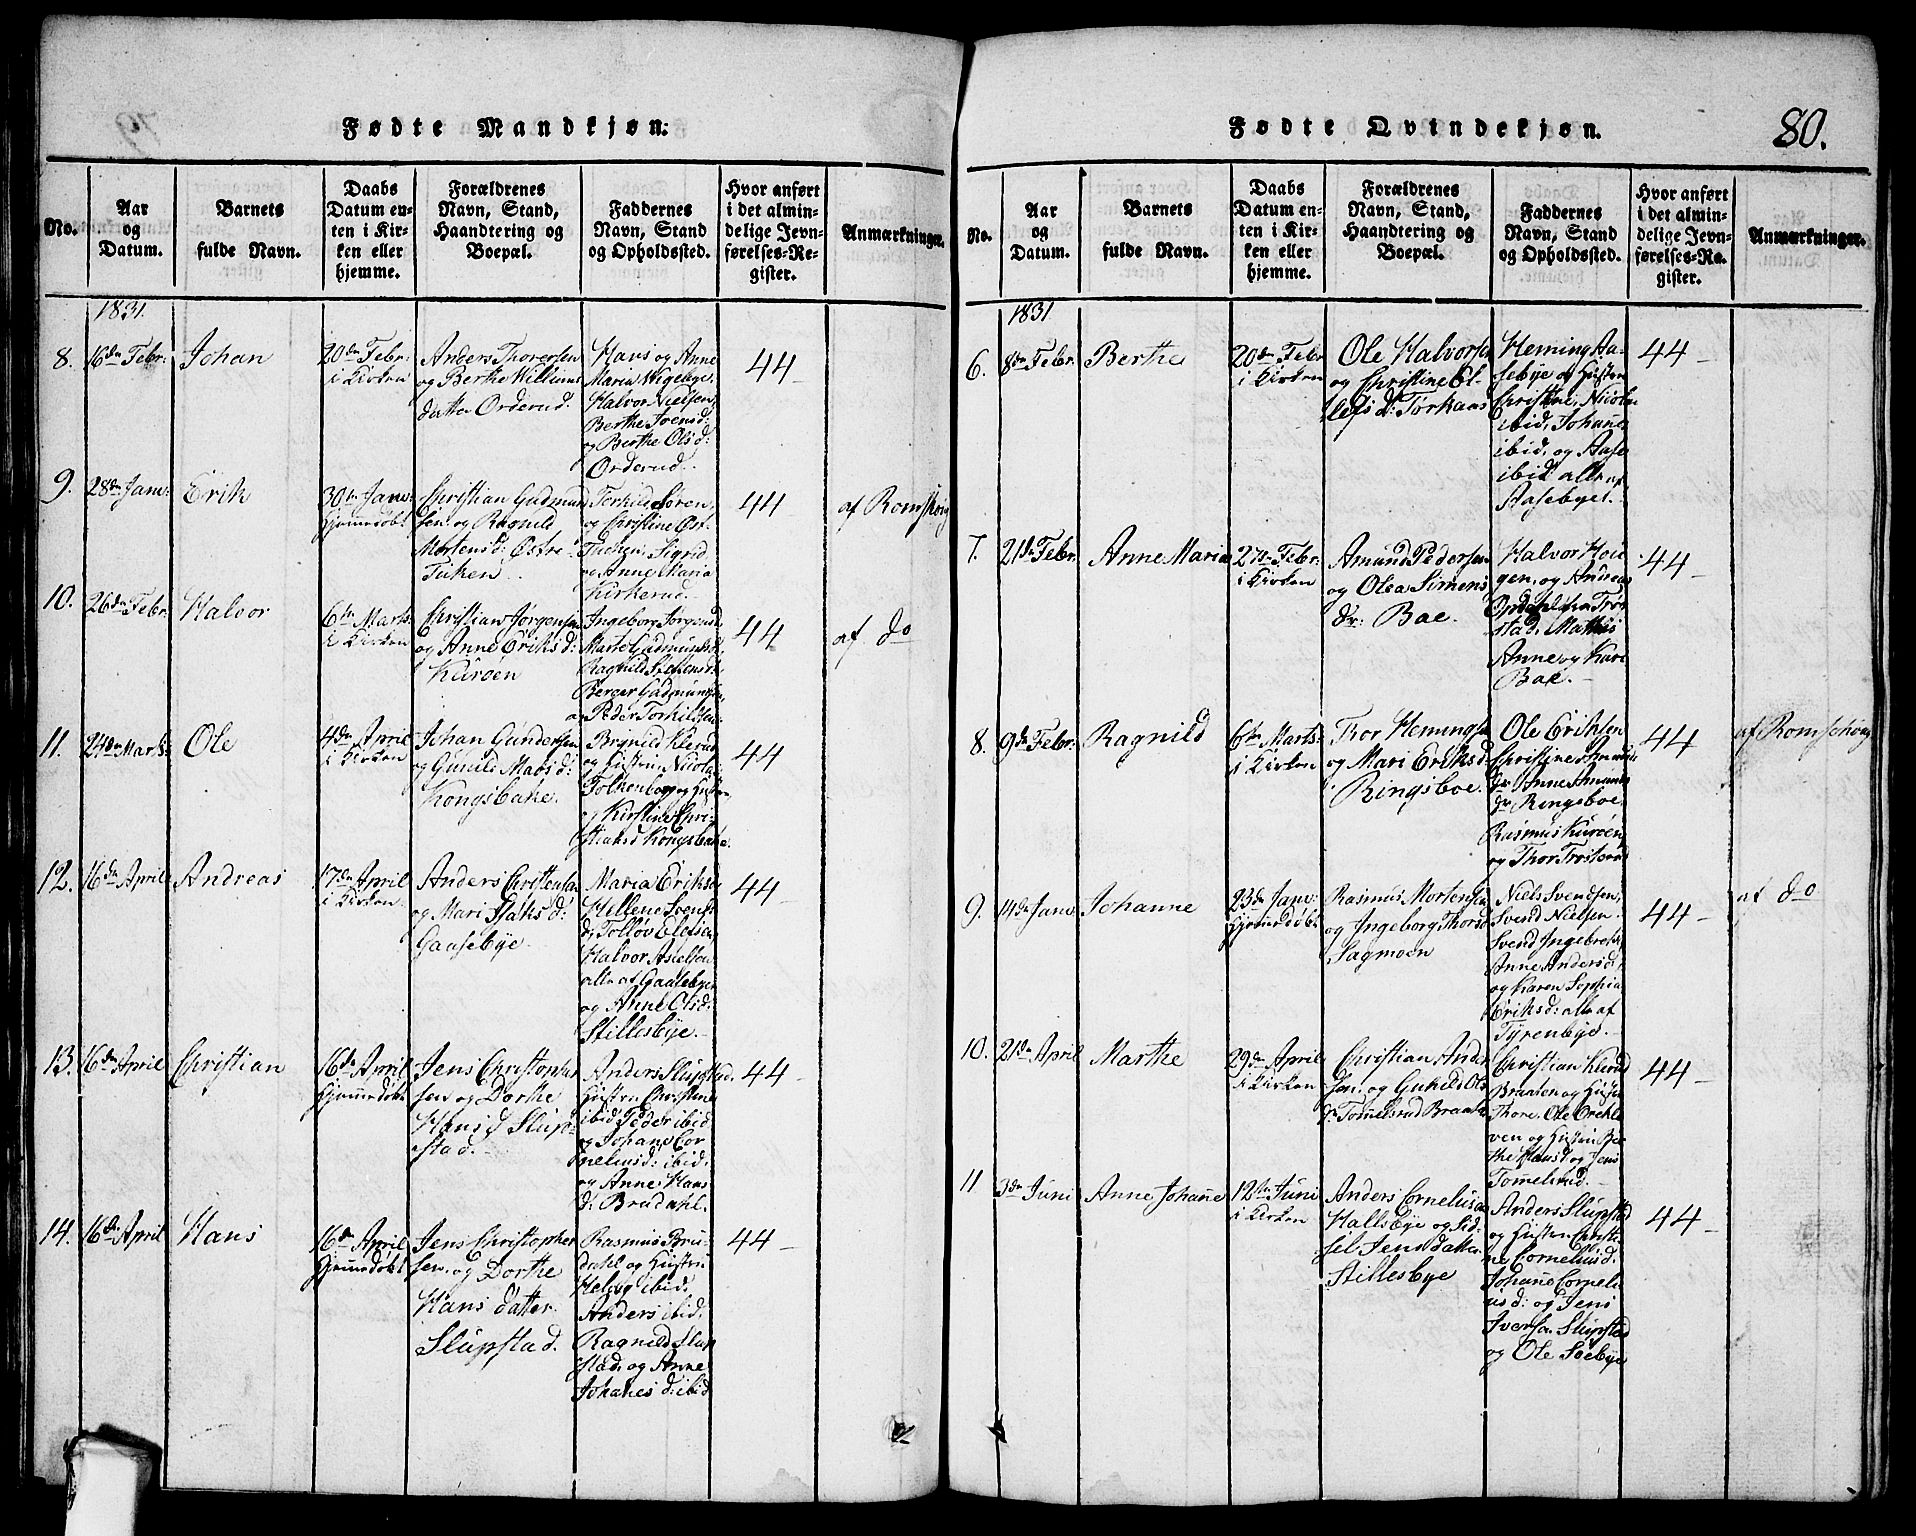 Fødte Mandkjøn:
No.
Aar og Datum.
Barnets fulde Navn.
Daabs Datum enten i Kirken eller hjemme.
Forældrenes Navn, Stand, Haandtering og Boepæl.
Faddernes Navn, Stand og Opholdssted.
Hvor anført i det almindelige Jevnførelses-Register.
Anmærkninger.
1831.
8. 16de Febr: Johan
20de Febr: i Kirken
Anders Thoresen
og Berthe Williums
datter Orderud.
Hans og Anne
Maria Wigebye,
Halvor Nielsen,
Berthe Ivensd:
og Berthe Olsd:
Orderud.
44
9. 28de Janv: Erik
30te Janv:
Hjemmedøbt
Christian Gudmund
sen og Ragnild
Mortensd: Østre
Tuken.
Torkild, Søren,
og Christine Øst-
Tucken, Sigrid
og Anne Maria
Kirkerud.
44
af Romskoug
10. 26de Febr: Halvor
6te Marts
i Kirken
Christian Jørgensen
og Anne Eriksd:
Kurøen
Ingeborg Jørgensd,
Marte Gudmundsd,
Ragnild
Berger Gudmundsen,
og Peder Torkildsen
44
af do
11. 24de Marts Ole
4de April
i Kirken
Johan Gundersen
og Gunild Maasd:
Kongsbake.
Brynild Klerud
og Hustru, Nicolai
Folkenborg og Hustru
og Kirstine Chri-
stiansd Kongsbake.
44
12. 16de April Andreas
17de April
i Kirken
Anders Christensen
og Mari Isaksd:
Gaasebye.
Maria Eriksd,
Hellene Svends
d, Tollov Elefsen
Halvor Axelsen
alle af Gaasebye
og Anne Olsd:
Stillesbye.
44
13. 16de April Christian
16de April
Hjemmedøbt
Jens Christopher
sen og Dorthe
Hansd Slup-
stad.
Anders Slupstad,
Hustru Christine
ibid Peder ibid
og Johane Cor
neliusd: ibid,
og Anne Hans
d: Bradahl.
44
14. 16de April Hans
16de April
Hjemmedøbt
Jens Christopher
sen og Dorthe
Hans datter
Slupstad.
Rasmus Bru-
dahl og Hustru
Helvig ibid.
Anders ibid.
Ragnild Slup
stad, og Anne
Johanes d: ibid
44
Fødte Qvindekjøn.
80.
No.
Aar og Datum.
Barnets fulde Navn.
Daabs Datum enten i Kirken eller hjemme.
Forældrenes Navn, Stand, Haandtering og Boepæl.
Faddernes Navn, Stand og Opholdssted.
Hvor anført i det almindelige Jevnførelses-Register.
Anmærkninger.
1831
6. 8de Febr. Berthe
20de Febr
i Kirken
Ole Halvorsen
og Christine El-
lefs d: Tørkaas
Heming Aa-
sebye og Hustru
Christine, Nicolai
ibid, Johane
ibid, og Aase
ibid alle af
Aasebye.
44
7. 21de Febr. Anne Maria
27de Febr:
i Kirken
Amund Pedersen
og Olea Simens
dr: Bae.
Halvor Hou
gen, og Andreas
Opdahl fra Trøg
stad, Mathis
Anne og Kari
Bae.
44
8. 9de Febr. Ragnild
6te Marts
i Kirken
Thor Hemings
og Mari Eriksd
Ringsboe.
Ole Eriksen
Christine Amunds
dr Anne Amunds
dr Ringsboe,
Rasmus Kurøen
og Thor Trostvad
44
af Romschoug
9. 14de Janv Johanne
23de Janv
Hjemmedøbt
Rasmus Mortensen
og Ingeborg Thorsd
Sagmoen
Niels Svendsen,
Svend Nielsen
Svend Ingebretsen,
Anne Andersd
og Karen Sophia
Eriksd: alle af
Tyrenbye.
44
af do
10. 21de April Marthe
29de April
i Kirken
Christian Ander
sen og Gunild Ols
dr Tomelsrud Braaten
Christian Klerud
Braaten og Hustru
Thore, Ole Orehl
ven og Hustru Ber
the Hansd og Jens
Tomelsrud.
44
11 3de Juni Anne Johane
12te Juni
i Kirken
Anders Corneliusen
Hallsbye og Sid-
sel Jens datter
Stillesbye
Anders Slupstad
og Hustru Christi
ne Corneliusd.
Johane Corneli
usd: og Jens
Iversen Slupstad
og Ole Soebye
44